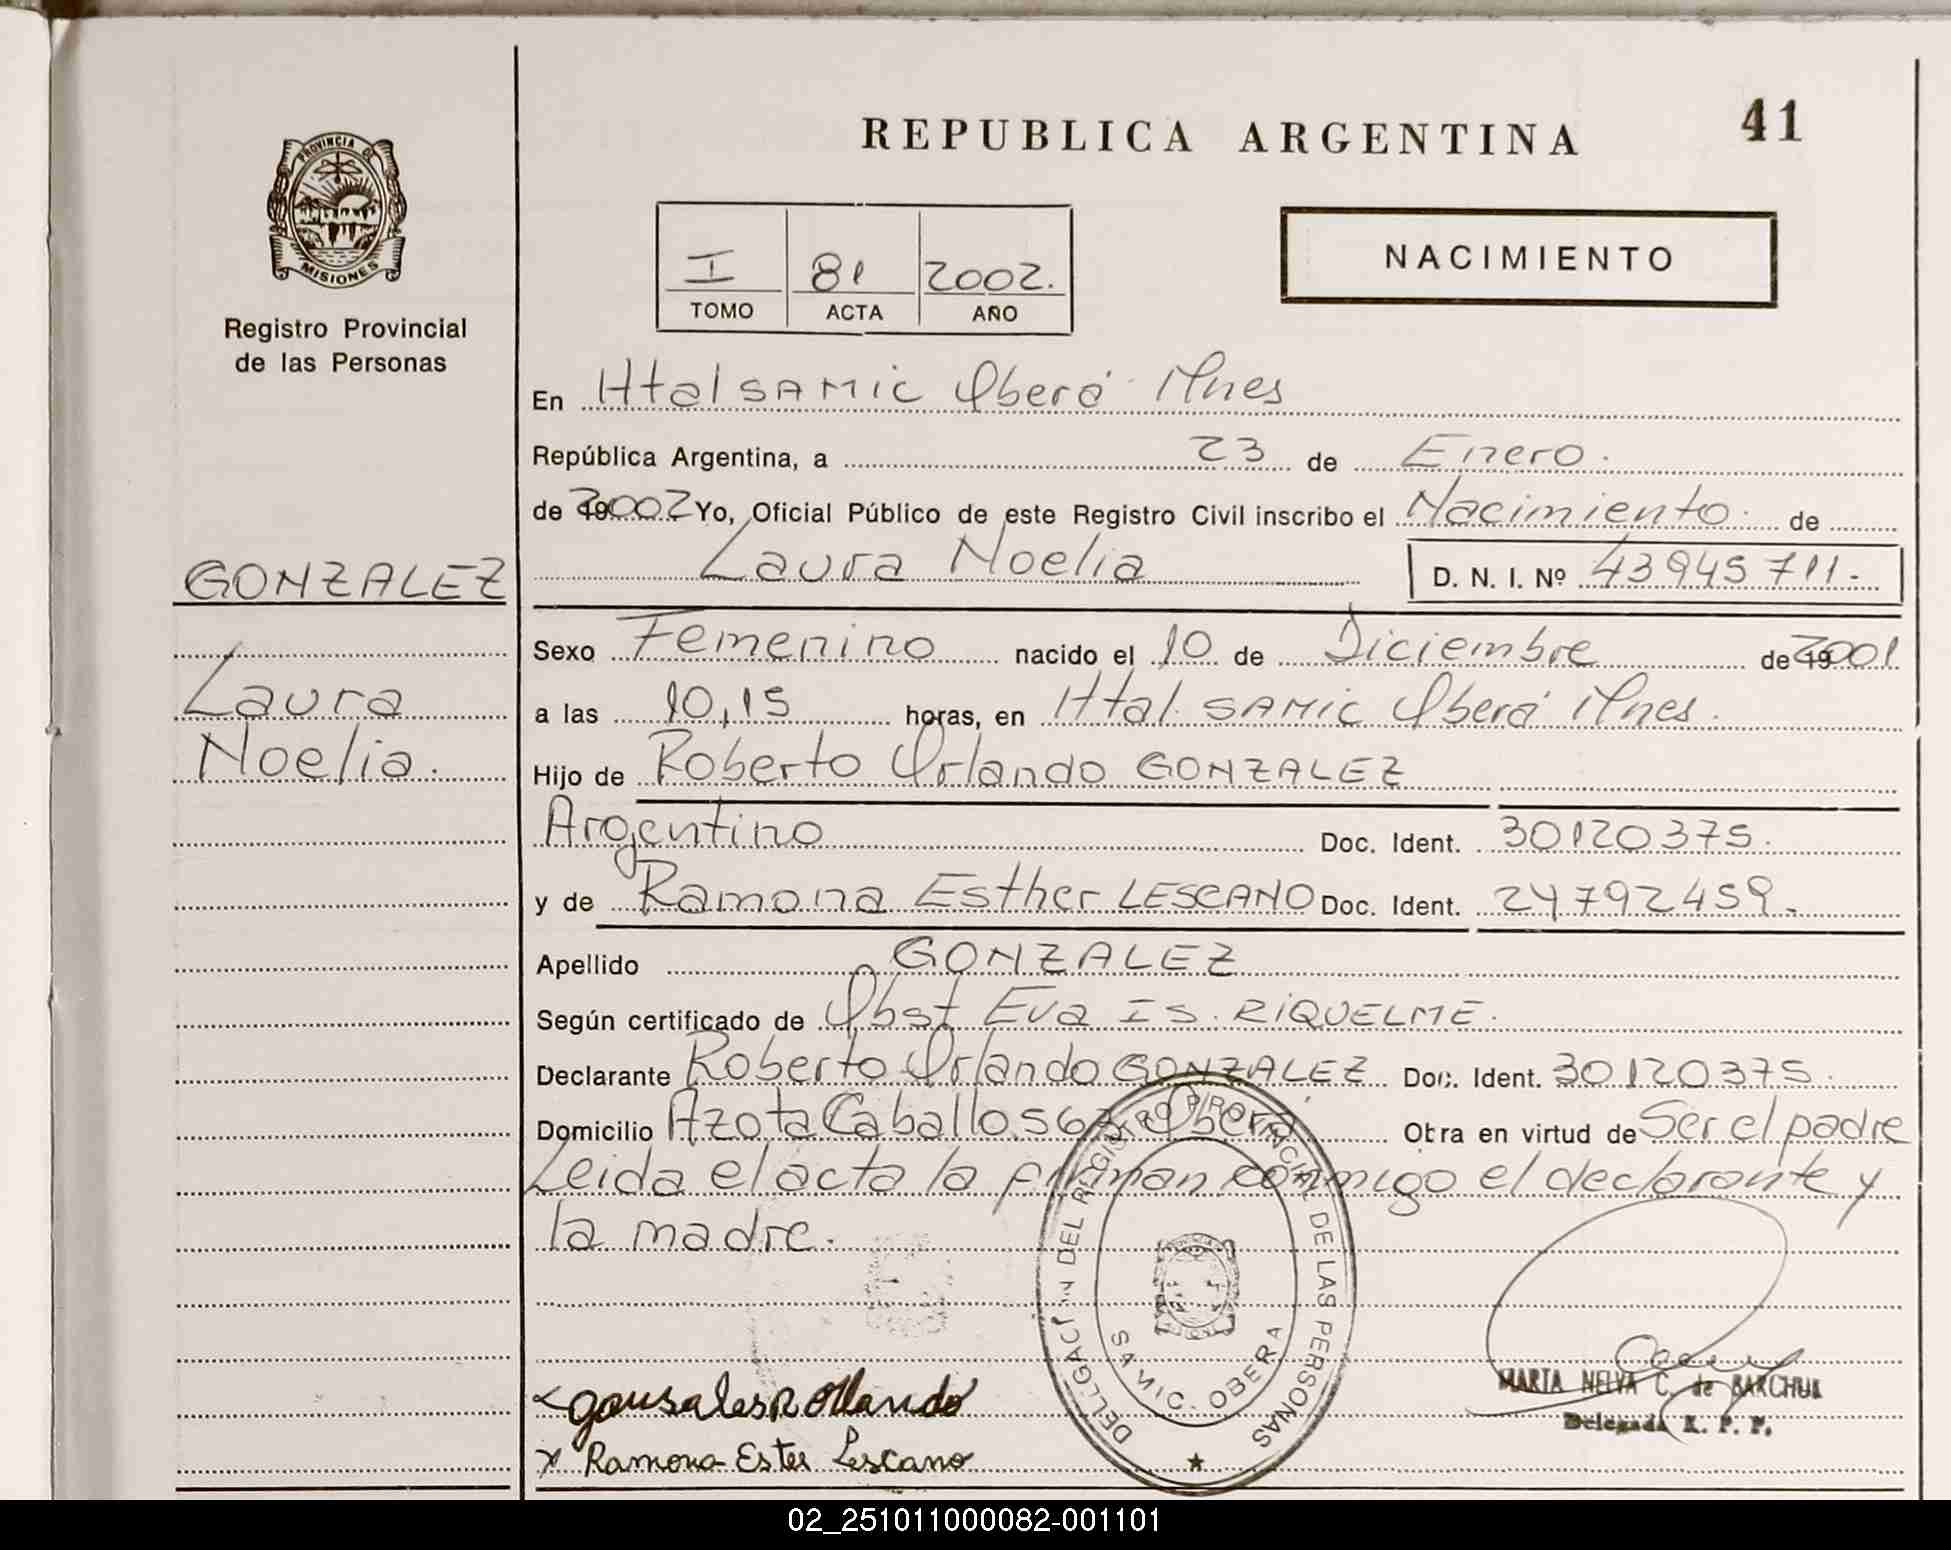 REPUBLICA ARGENTINA
41
PROVINCIA DE
MISIONES
Registro Provincial
de las Personas
I 81 2002.
TOMO ACTA AÑO
NACIMIENTO
En Htal SAMIC Oberá Mnes
República Argentina, a 23 de Enero.
de 2002 Yo, Oficial Público de este Registro Civil inscribo el Nacimiento de
Laura Noelia D. N. I. Nº 43945711.-
GONZALEZ
Laura
Noelia.
Sexo Femenino nacido el 10 de Diciembre de 2001
a las 10,15 horas, en Htal. SAMIC Oberá Mnes.
Hijo de Roberto Orlando GONZALEZ
Argentino Doc. Ident. 30120375.
y de Ramona Esther LESCANO Doc. Ident. 24792459.-
Apellido GONZALEZ
Según certificado de Obst Eva IS. RIQUELME.
Declarante Roberto Orlando GONZALEZ Doc. Ident. 30120375.
Domicilio Azota Caballos 63 Oberá Obra en virtud de Ser el padre
Leida el acta la firman conmigo el declarante y
la madre.
DELGACI N DEL REGISTRO PROVINCIAL DE LAS PERSONAS
SAMIC. OBERA
MARIA NELVA C. de BARCHUK
Delegada R. P. P.
x gonsales R Orlando
x Ramona Ester Lescano
02_251011000082-001101